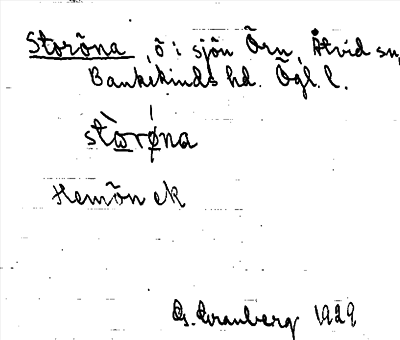 Storöna, ö i sjön Örn, Åtvid sn,
Bankekinds hd. Ögl. l.
stòrøna
Hemön ek
G. Granberg 1929